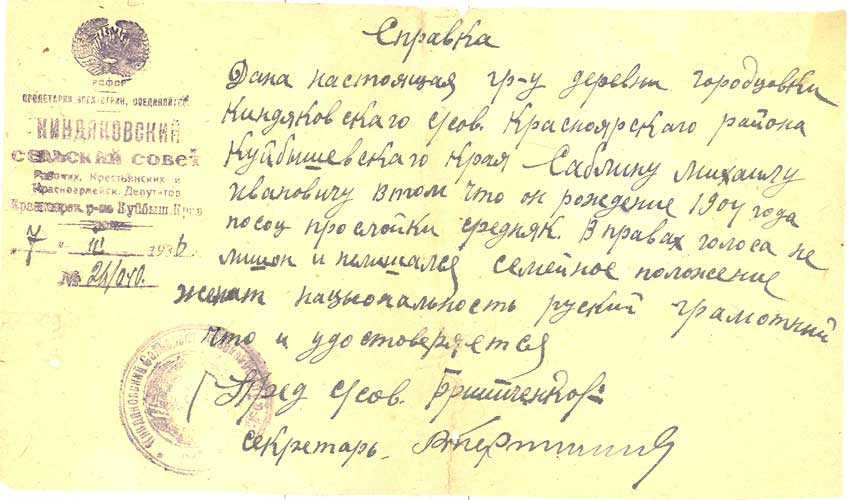 РСФСР
ПРОЛЕТАРИИ ВСЕХ СТРАН, СОЕДИНЯЙТЕСЬ
КИНДЯКОВСКИЙ
СЕЛЬСКИЙ СОВЕТ
Рабочих, Крестьянских и
Красноармейск. Депутатов
Красноярск. р-на Куйбыш. Края
7 " III 1936 г.
№ 24/040.
Справка
Дана настоящая гр-у деревни городцовки
Киндяковскаго с/сов. Красноярскаго района
Куйбышевскаго Края Саблину Михаилу
Ивановичу втом что он рождение 1904 года
посоц прослойки средняк. В правах голоса не
лишон и нелишался семейное положение
женат национальность руский грамотный
что и удостоверяется
Пред с/сов.
секретарь.